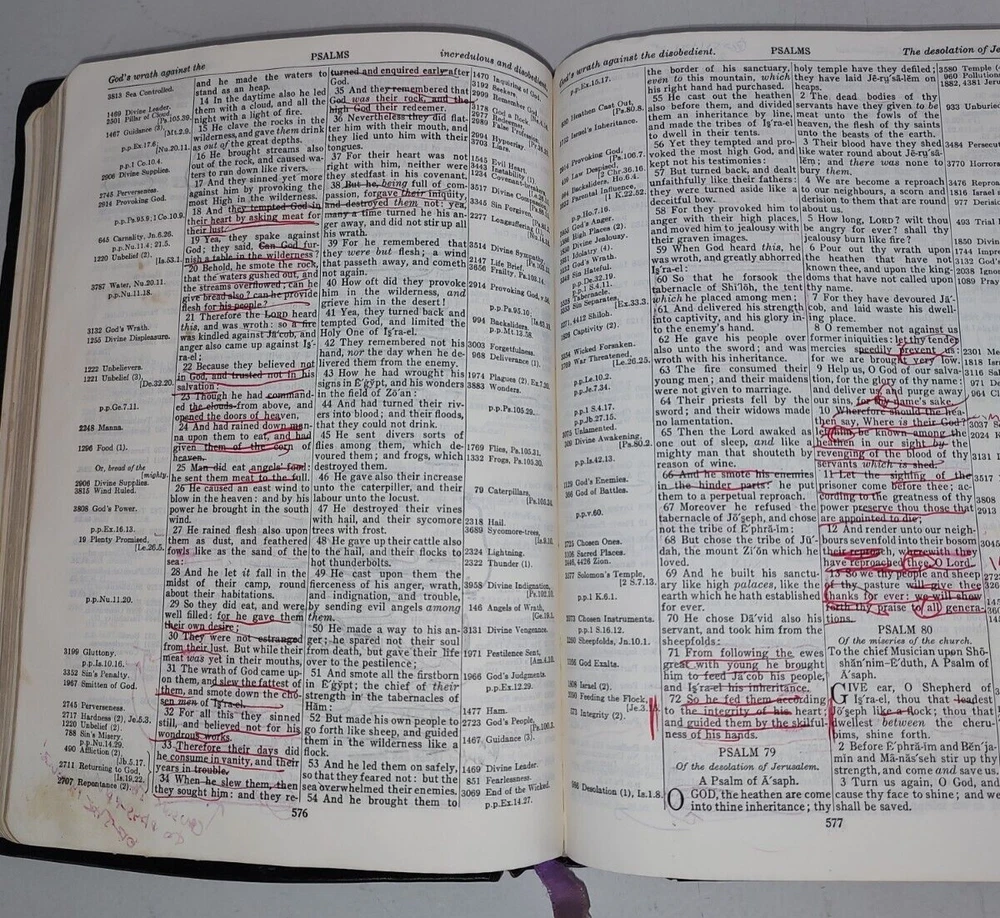 God's wrath against the
PSALMS
incredulous and disobedient
3813 Sea Controlled.
1469 Divine Leader.
2501 Pillar of Cloud.
[Ps.105.39.
1467 Guidance (3).
[Mt.2.9.
p.p.Ex.17.6.
[Nu.20.11.
p.p.1 Co.10.4.
2906 Divine Supplies.
2745 Perverseness.
2914 Provoking God.
p.p.Ps.95.9; 1 Co.10.9.
645 Carnality, Jn.6.26.
p.p.Nu.11.4; 21.5.
1220 Unbelief (2).
[Is.53.1.
3787 Water, Nu.20.11.
p.p.Nu.11.18.
3132 God's Wrath.
1255 Divine Displeasure.
1222 Unbelievers.
1221 Unbelief (3).
[De.32.20.
p.p.Ge.7.11.
2248 Manna.
1296 Food (1).
Or, bread of the
[mighty.
2906 Divine Supplies.
3815 Wind Ruled.
3808 God's Power.
p.p.Ex.16.13.
19 Plenty Promised,
[Le.26.5.
p.p.Nu.11.20.
3199 Gluttony.
p.p.Is.10.16.
3352 Sin's Penalty.
1967 Smitten of God.
2745 Perverseness.
2717 Hardness (2), Je.5.3.
1220 Unbelief (2).
788 Sin's Misery.
p.p.Nu.14.29.
490 Affliction (2).
[Jb.5.17.
2711 Returning to God,
[Is.19.22.
2707 Repentance (2).
and he made the waters to
stand as an heap.
14 In the daytime also he led
them with a cloud, and all the
night with a light of fire.
15 He clave the rocks in the
wilderness, and gave them drink
as out of the great depths.
16 He brought streams also
out of the rock, and caused wa-
ters to run down like rivers.
17 And they sinned yet more
against him by provoking the
most High in the wilderness.
18 And they tempted God in
their heart by asking meat for
their lust.
19 Yea, they spake against
God; they said, Can God fur-
nish a table in the wilderness?
20 Behold, he smote the rock,
that the waters gushed out, and
the streams overflowed; can he
give bread also? can he provide
flesh for his people?
21 Therefore the LORD heard
this, and was wroth: so a fire
was kindled against Jā'cob, and
anger also came up against Iṣ'-
ra-el;
22 Because they believed not
in God, and trusted not in his
salvation:
23 Though he had command-
ed the clouds from above, and
opened the doors of heaven,
24 And had rained down man-
na upon them to eat, and had
given them of the corn of
heaven.
25 Man did eat angels' food:
he sent them meat to the full.
26 He caused an east wind to
blow in the heaven: and by his
power he brought in the south
wind.
27 He rained flesh also upon
them as dust, and feathered
fowls like as the sand of the
sea:
28 And he let it fall in the
midst of their camp, round
about their habitations.
29 So they did eat, and were
well filled: for he gave them
their own desire;
30 They were not estranged
from their lust. But while their
meat was yet in their mouths,
31 The wrath of God came up-
on them, and slew the fattest of
them, and smote down the cho-
sen men of Iṣ'ra-el.
32 For all this they sinned
still, and believed not for his
wondrous works.
33 Therefore their days did
he consume in vanity, and their
years in trouble.
34 When he slew them, then
they sought him: and they re-
turned and enquired early after
God.
35 And they remembered that
God was their rock, and the
high God their redeemer.
36 Nevertheless they did flat-
ter him with their mouth, and
they lied unto him with their
tongues.
37 For their heart was not
right with him, neither were
they stedfast in his covenant.
38 But he, being full of com-
passion, forgave their iniquity,
and destroyed them not: yea,
many a time turned he his an-
ger away, and did not stir up all
his wrath.
39 For he remembered that
they were but flesh; a wind
that passeth away, and cometh
not again.
40 How oft did they provoke
him in the wilderness, and
grieve him in the desert!
41 Yea, they turned back and
tempted God, and limited the
Holy One of Iṣ'ra-el.
42 They remembered not his
hand, nor the day when he de-
livered them from the enemy.
43 How he had wrought his
signs in Ē'ġy̆pt, and his wonders
in the field of Zō'an:
44 And had turned their riv-
ers into blood; and their floods,
that they could not drink.
45 He sent divers sorts of
flies among them, which de-
voured them; and frogs, which
destroyed them.
46 He gave also their increase
unto the caterpiller, and their
labour unto the locust.
47 He destroyed their vines
with hail, and their sycomore
trees with frost.
48 He gave up their cattle also
to the hail, and their flocks to
hot thunderbolts.
49 He cast upon them the
fierceness of his anger, wrath,
and indignation, and trouble,
by sending evil angels among
them.
50 He made a way to his an-
ger; he spared not their soul
from death, but gave their life
over to the pestilence;
51 And smote all the firstborn
in Ē'ġy̆pt; the chief of their
strength in the tabernacles of
Hăm:
52 But made his own people to
go forth like sheep, and guided
them in the wilderness like a
flock.
53 And he led them on safely,
so that they feared not: but the
sea overwhelmed their enemies.
54 And he brought them to
1470 Inquiring of God.
3192 Seekers.
2999 Remember.
3178 God a Rock.
2977 Redeemer.
2989 False Professions.
2994 Hypocrisy.
3703 Liars.
1545 Evil Heart.
3443 Instability.
1234 Covenant-breakers.
3517 Divine Compassion.
3345 Sin Forgiven.
2277 Longsuffering.
3514 Divine Sympathy.
2147 Life Brief.
3656 Frailty.
2914 Provoking God, v.
p.p.Ps.95.10.
994 Backsliders.
p.p.Mt.13.58.
3003 Forgetfulness.
968 Deliverance (1).
1974 Plagues (2), Ex.7.20.
3883 Wonders.
p.p.Ps.105.29.
1769 Flies, Ps.105.31.
1332 Frogs, Ps.105.30.
79 Caterpillars,
[Ps.105.34.
2318 Hail.
3689 Sycomore-trees,
[Is.9.10.
2324 Lightning.
2322 Thunder (1).
3958 Divine Indignation,
[Ps.102.10.
146 Angels of Wrath,
[Ge.19.1.
3131 Divine Vengeance.
1971 Pestilence Sent,
[Am.4.10.
1966 God's Judgments.
p.p.Ex.12.29.
1477 Ham.
2723 God's People,
[Ps.100.3.
1467 Guidance (3).
1469 Divine Leader.
851 Fearlessness.
3069 End of the Wicked.
p.p.Ex.14.27.
576
God's wrath against the disobedient.
PSALMS
The desolation of Je
p.p.Ex.15.17.
Heathen Cast Out,
[Ps.80.8.
Israel's Inheritance.
2914 Provoking God.
[Ps.106.7.
Law Despised,
[2 Chr.36.16.
Backsliders, Ho.6.4.
Parental Influence,
[1 K.22.52.
p.p.Ho.7.16.
High Places (2).
Divine Jealousy.
Idolatry (4).
God's Wrath.
Sin Hateful.
p.p.De.32.19.
p.p.1 S.4.11.
Tabernacle.
Sin Separates,
[Ex.33.3.
4412 Shiloh.
Captivity (2).
Wicked Forsaken.
War Threatened,
[Le.26.25.
p.p.Le.10.2.
p.p.Je.7.34.
p.p.1 S.4.17.
p.p.Jb.27.15.
Unlamented.
Divine Awakening,
[Ps.80.2.
p.p.Is.42.13.
God's Enemies.
God of Battles.
p.v.60.
Chosen Ones.
Sacred Places.
4426 Zion.
Solomon's Temple,
[2 S.7.13.
p.p.1 K.6.1.
Chosen Instruments.
p.p.1 S.16.12.
Sheepfolds, Jn.10.1.
God Exalts.
Israel (2).
Feeding the Flock,
[Je.3.
Integrity (2).
Desolation (1), Is.1.8.
the border of his sanctuary,
even to this mountain, which
his right hand had purchased.
55 He cast out the heathen
also before them, and divided
them an inheritance by line,
and made the tribes of Iṣ'ra-el
to dwell in their tents.
56 Yet they tempted and pro-
voked the most high God, and
kept not his testimonies:
57 But turned back, and dealt
unfaithfully like their fathers:
they were turned aside like a
deceitful bow.
58 For they provoked him to
anger with their high places,
and moved him to jealousy with
their graven images.
59 When God heard this, he
was wroth, and greatly abhorred
Iṣ'ra-el:
60 So that he forsook the
tabernacle of Shī'lōh, the tent
which he placed among men;
61 And delivered his strength
into captivity, and his glory in-
to the enemy's hand.
62 He gave his people over
also unto the sword; and was
wroth with his inheritance.
63 The fire consumed their
young men; and their maidens
were not given to marriage.
64 Their priests fell by the
sword; and their widows made
no lamentation.
65 Then the Lord awaked as
one out of sleep, and like a
mighty man that shouteth by
reason of wine.
66 And he smote his enemies
in the hinder parts: he put
them to a perpetual reproach.
67 Moreover he refused the
tabernacle of Jō'ṣeph, and chose
not the tribe of Ē'phră-ĭm:
68 But chose the tribe of Jū'-
dah, the mount Zī'ŏn which he
loved.
69 And he built his sanctu-
ary like high palaces, like the
earth which he hath established
for ever.
70 He chose Dā'vid also his
servant, and took him from the
sheepfolds:
71 From following the ewes
great with young he brought
him to feed Jā'cob his people,
and Iṣ'ra-el his inheritance.
72 So he fed them according
to the integrity of his heart;
and guided them by the skilful-
ness of his hands.
PSALM 79
Of the desolation of Jerusalem.
A Psalm of Ā'saph.
O GOD, the heathen are come
into thine inheritance; thy
holy temple have they defiled;
they have laid Jē-ru̱'sā-lĕm on
heaps.
2 The dead bodies of thy
servants have they given to be
meat unto the fowls of the
heaven, the flesh of thy saints
unto the beasts of the earth.
3 Their blood have they shed
like water round about Jē-ru̱'sā-
lĕm; and there was none to
bury them.
4 We are become a reproach
to our neighbours, a scorn and
derision to them that are round
about us.
5 How long, LORD? wilt thou
be angry for ever? shall thy
jealousy burn like fire?
6 Pour out thy wrath upon
the heathen that have not
known thee, and upon the king-
doms that have not called upon
thy name.
7 For they have devoured Jā'-
cob, and laid waste his dwell-
ing place.
8 O remember not against us
former iniquities: let thy tender
mercies speedily prevent us:
for we are brought very low.
9 Help us, O God of our salva-
tion, for the glory of thy name:
and deliver us, and purge away
our sins, for thy name's sake.
10 Wherefore should the hea-
then say, Where is their God?
let him be known among the
heathen in our sight by the
revenging of the blood of thy
servants which is shed.
11 Let the sighing of the
prisoner come before thee; ac-
cording to the greatness of thy
power preserve thou those that
are appointed to die;
12 And render unto our neigh-
bours sevenfold into their bosom
their reproach, wherewith they
have reproached thee, O Lord.
13 So we thy people and sheep
of thy pasture will give thee
thanks for ever: we will shew
forth thy praise to all genera-
tions.
PSALM 80
Of the miseries of the church.
To the chief Musician upon Shō-
shăn'nim-Ē'duth, A Psalm of
Ā'saph.
GIVE ear, O Shepherd of
Iṣ'ra-el, thou that leadest
Jō'ṣeph like a flock; thou that
dwellest between the cheru-
bims, shine forth.
2 Before Ē'phră-ĭm and Bĕn'ja-
min and Mā-năs'seh stir up thy
strength, and come and save us.
3 Turn us again, O God, and
cause thy face to shine; and we
shall be saved.
3580 Temple
960 Pollution
1882, 4381 Jer
933 Unburied
3484 Persecut
3770 Horrors
3476 Reproach
1816 Israel
493 Trial
1850 Divine
1744
2038 God's
1089 Pray
2301
1818
3116
971
964
3037
2024
3131
3517
2913
3045
577